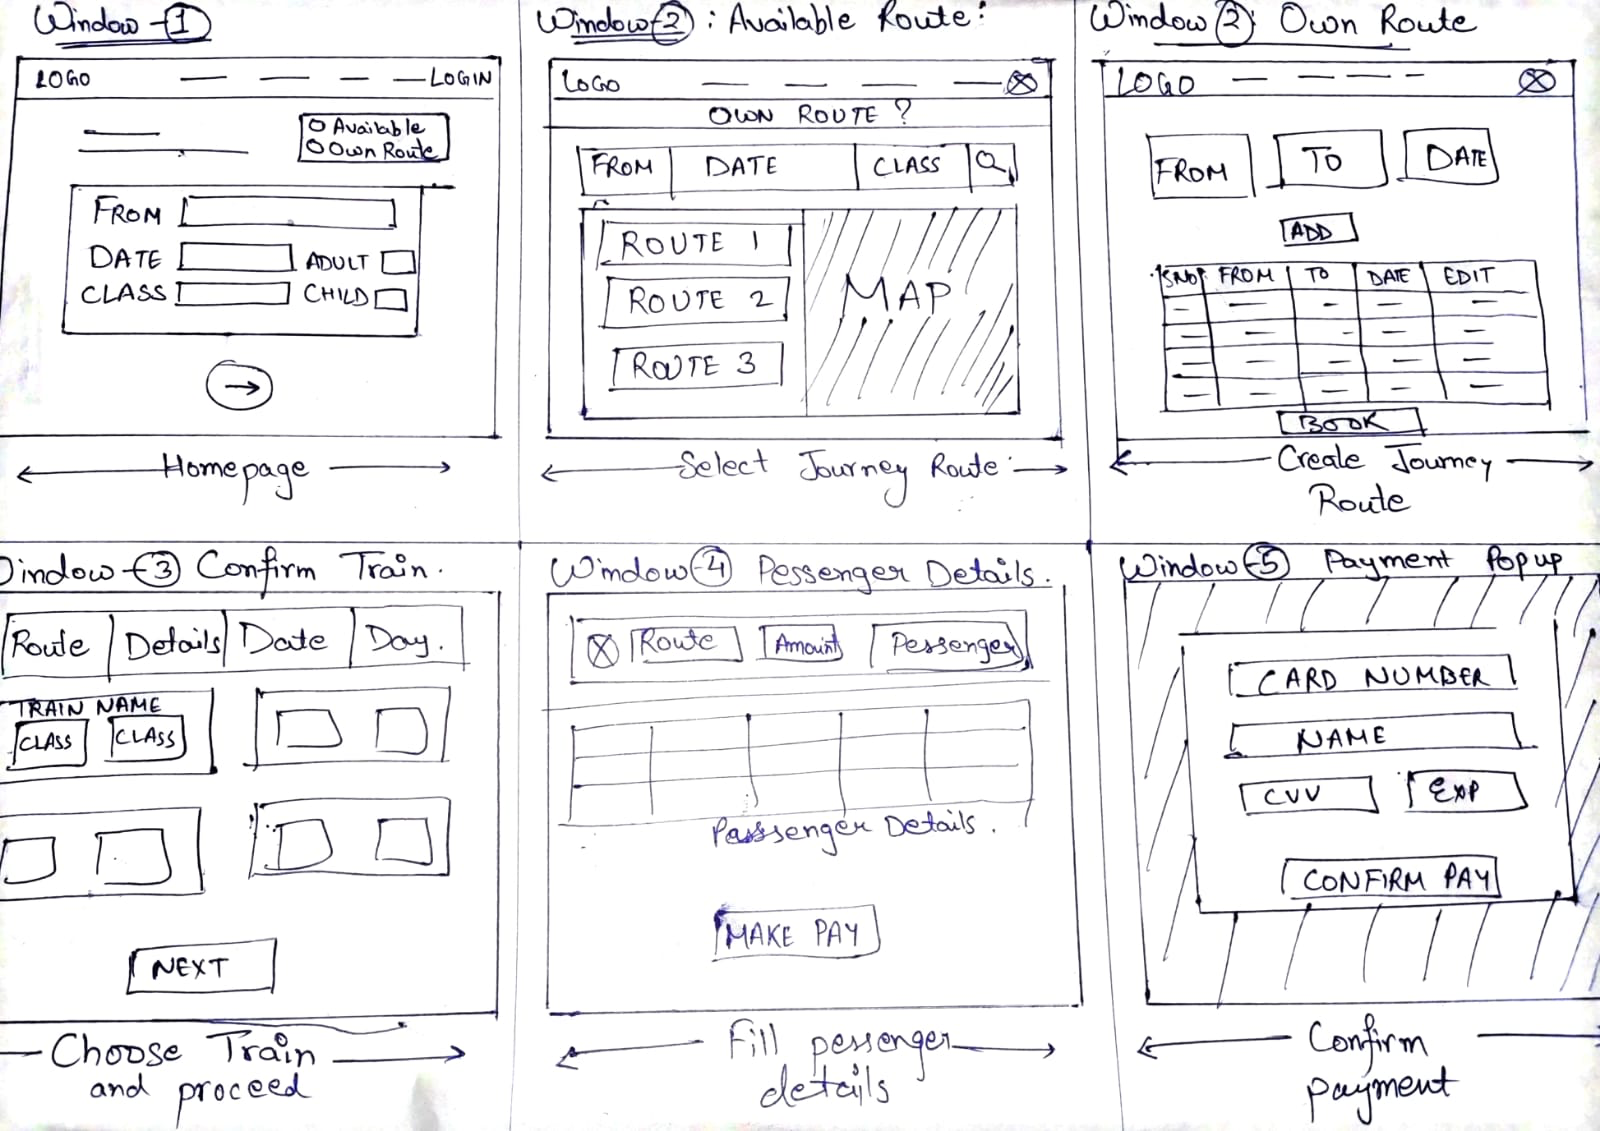 Window-1
LOGO LOGIN
Available
Own Route
FROM
DATE ADULT
CLASS CHILD
→
Homepage
Window-2 : Available Route:
LOGO
OWN ROUTE ?
FROM DATE CLASS
ROUTE 1
ROUTE 2
ROUTE 3
MAP
Select Journey Route
Window 2: Own Route
LOGO
FROM TO DATE
ADD
SNO FROM TO DATE EDIT
BOOK
Create Journey
Route
Window-3 Confirm Train.
Route Details Date Day.
TRAIN NAME
CLASS CLASS
NEXT
Choose Train
and proceed
Window-4 Pessenger Details.
Route Amount Pessenger
Passsenger Details.
MAKE PAY
Fill pessenger
details
Window-5 Payment Popup
CARD NUMBER
NAME
CVV EXP
CONFIRM PAY
Confirm
payment